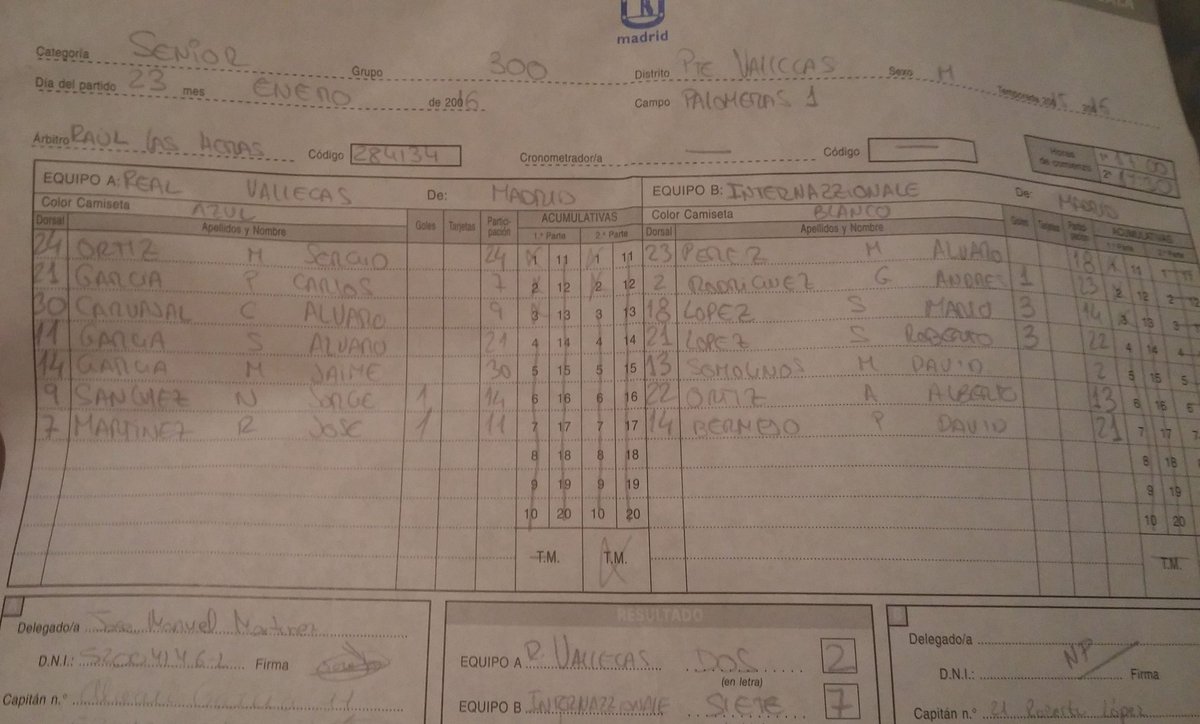 madrid
Categoría SENIOR Grupo 300 Distrito PTE VALLECAS Sexo M
Día del partido 23 mes ENERO de 2016 Campo PALOMERAS 1 Temporada 2015 2016
Arbitro RAUL LAS HERAS Código 284134 Cronometrador/a — Código — Horas de comienzo 1º 17:00
2º 17:30
EQUIPO A: REAL VALLECAS De: MADRID EQUIPO B: INTERNAZZIONALE De: MADRID
Color Camiseta AZUL Color Camiseta BLANCO
Dorsal Apellidos y Nombre Goles Tarjetas Participación ACUMULATIVAS 1.ª Parte 2.ª Parte Dorsal Apellidos y Nombre Goles Tarjetas Participación ACUMULATIVAS 1.ª Parte 2.ª Parte
24 ORTIZ M SERGIO 24 1 11 1 11 23 PEREZ M ALVARO 18 1 11 1 11
21 GARCIA P CARLOS 7 2 12 2 12 2 RODRIGUEZ G ANDRES 1 23 2 12 2
30 CARVAJAL C ALVARO 9 3 13 3 13 18 LOPEZ S MARIO 3 14 3 13 3
11 GARCIA S ALVARO 21 4 14 4 14 21 LOPEZ S ROBERTO 3 22 4 14 4
14 GARCIA M JAIME 30 5 15 5 15 13 SOMOLINOS M DAVID 2 5 15 5
9 SANCHEZ N JORGE 1 14 6 16 6 16 22 ORTIZ A ALBERTO 13 6 16 6
7 MARTINEZ R JOSE 1 11 7 17 7 17 14 BERMEJO P DAVID 21 7 17 7
8 18 8 18 8 18
9 19 9 19 9 19
10 20 10 20 10 20
T.M. T.M. T.M.
RESULTADO
Delegado/a Jose Manuel Martinez Delegado/a
D.N.I.: Firma EQUIPO A R. VALLECAS DOS 2 D.N.I.: NP Firma
(en letra)
Capitán n.º 11 EQUIPO B INTERNAZZIONALE SIETE 7 Capitán n.º 21 Roberto López